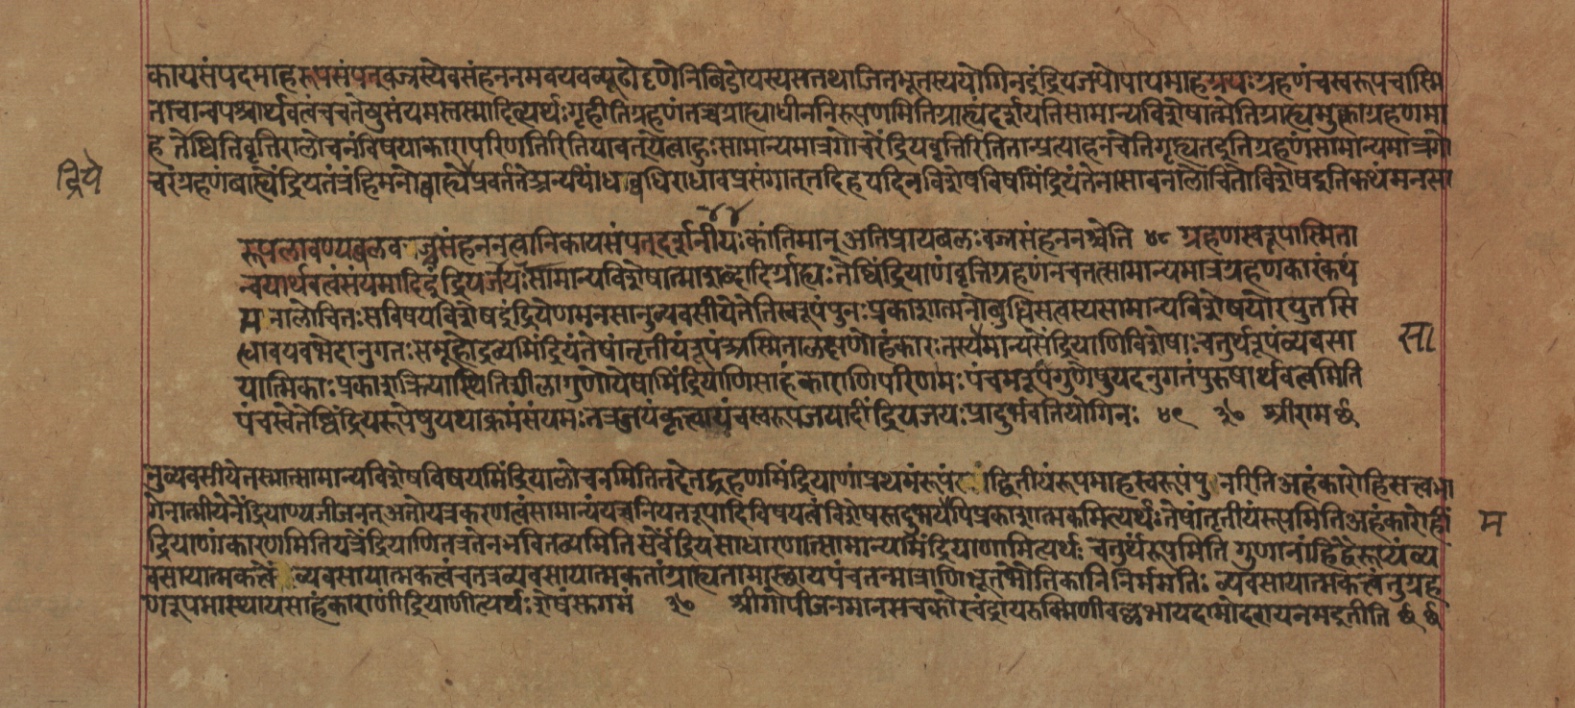 कायसंपदमाहरूपसंपन्नवज्रस्येवसंहननमवयवव्यूहोदृणोनिबिडोयस्यसतथाजितभूतस्ययोगिनइंद्रियजपोपायमाहग्रयःग्रहणंचस्वरूपंचास्मि
ताचान्वपश्चार्थवत्वंचचतेषुसंयमस्तस्मादित्यर्थःगृहीतिग्रहणंतच्चग्राह्याधीननिरूपणमितिग्राह्यंदर्शयतिसामान्यविशेषात्मेतिग्राह्यमुक्त्वाग्रहणमा
ह तेष्वितिवृत्तिरालोचनंविषयाकारापरिणतिरितियावत्येत्वाहुःसामान्यमात्रगोचरेंद्रियवृत्तिरितितान्प्रत्याहनचेतिगृह्यतइतिग्रहणंसामान्यमात्रगो
द्रिये
चरंग्रहणंबाह्येंद्रियतंत्रंहिमनोबाह्येप्रवर्ततेअन्यथांधबधिराधावप्रसंगात्तदिहयदिनविशेषविषमिंद्रियंतेनासावनालोचितोविशेषइतिकथंमनसा
४४
रूपलावण्यबलवज्रसंहननत्वानिकायसंपत् दर्शनीयःकांतिमान् अतिप्रायबलःवज्रसंहननश्चेति ४८ ग्रहणस्वरूपास्मिता
न्वयार्थवत्वंसंयमादिइंद्रियजयःसामान्यविशेषात्माशब्दादिर्ग्राह्यःतेष्विंद्रियाणंवृत्तिग्रहणंनचतत्सामान्यमात्रग्रहणकारंकथं
म नालोचितःसविषयविशेषइंद्रियेणमनसानुव्यवसीयेतेतिस्वरूपंपुनःप्रकाशात्मनोबुधिसत्वस्यसामान्यविशेषयोरयुतसि
सा
त्धावयवभेदानुगतःसमूहोद्रव्यमिंद्रियंतेषांतृतीयंरूपंअस्मितालक्षणोहंकारःतस्यमान्यसेंद्रियाणिविशेषाःचतुर्थंरूपंव्यवसा
यात्मिकाःप्रकाशक्रियास्थितिशीलागुणोयेषामिंद्रियाणिसाहंकाराणिपरिणामःपंचमंरूपंगुणेषुयदनुगतंपुरुषार्थवत्वमिति
पंचस्वेतेष्विंद्रियरूपेषुयथाक्रमंसंयमःतत्रजयंकृत्वापंचस्वरूपजयादींद्रियजयःप्रादुर्भवतियोगिनः ४९ श्रीराम
नुव्यवसीयेतस्मात्सामान्यविशेषविषयमिंद्रियालोचनमितितदेतद्ग्रहणमिंद्रियाणांप्रथमंरूपं द्वितीयंरूपमाहस्वरूपंपुनरितिअहंकारोहिसत्वभा
गेनात्मीयेनेंद्रियाण्यजीजनत्अतोयत्रकरणत्वंसामान्यंयच्चनियतरूपादिविषयत्वंविशेषस्तदुभयमपिप्रकाशात्मकमित्यर्थःतेषांतृतीयंरूपमितिअहंकारोहीं
म
द्रियाणांकारणमितियत्रेंद्रियाणितत्रतेनभवितव्यमितिसर्वेंद्रियसाधारणात्सामान्यमिंद्रियाणामित्यर्थः चतुर्थंरूपमिति गुणानांहिद्वैरूप्यंव्य
वसायात्मकत्वं व्यवसायात्मकत्वंचतत्रव्यवसायात्मकतांग्राह्यतामास्थायपंचतन्मात्राणिभूतभौतिकानिनिर्मिमतिः व्यवसायात्मकत्वंनुग्रह
णरूपमास्थायसाहंकाराणींद्रियाणीत्यर्थःशेषंसुगमं श्रीगोपीजनमानसचकोरचंद्रायरुक्मिणीवल्लभायदामोदरायनमइतीति